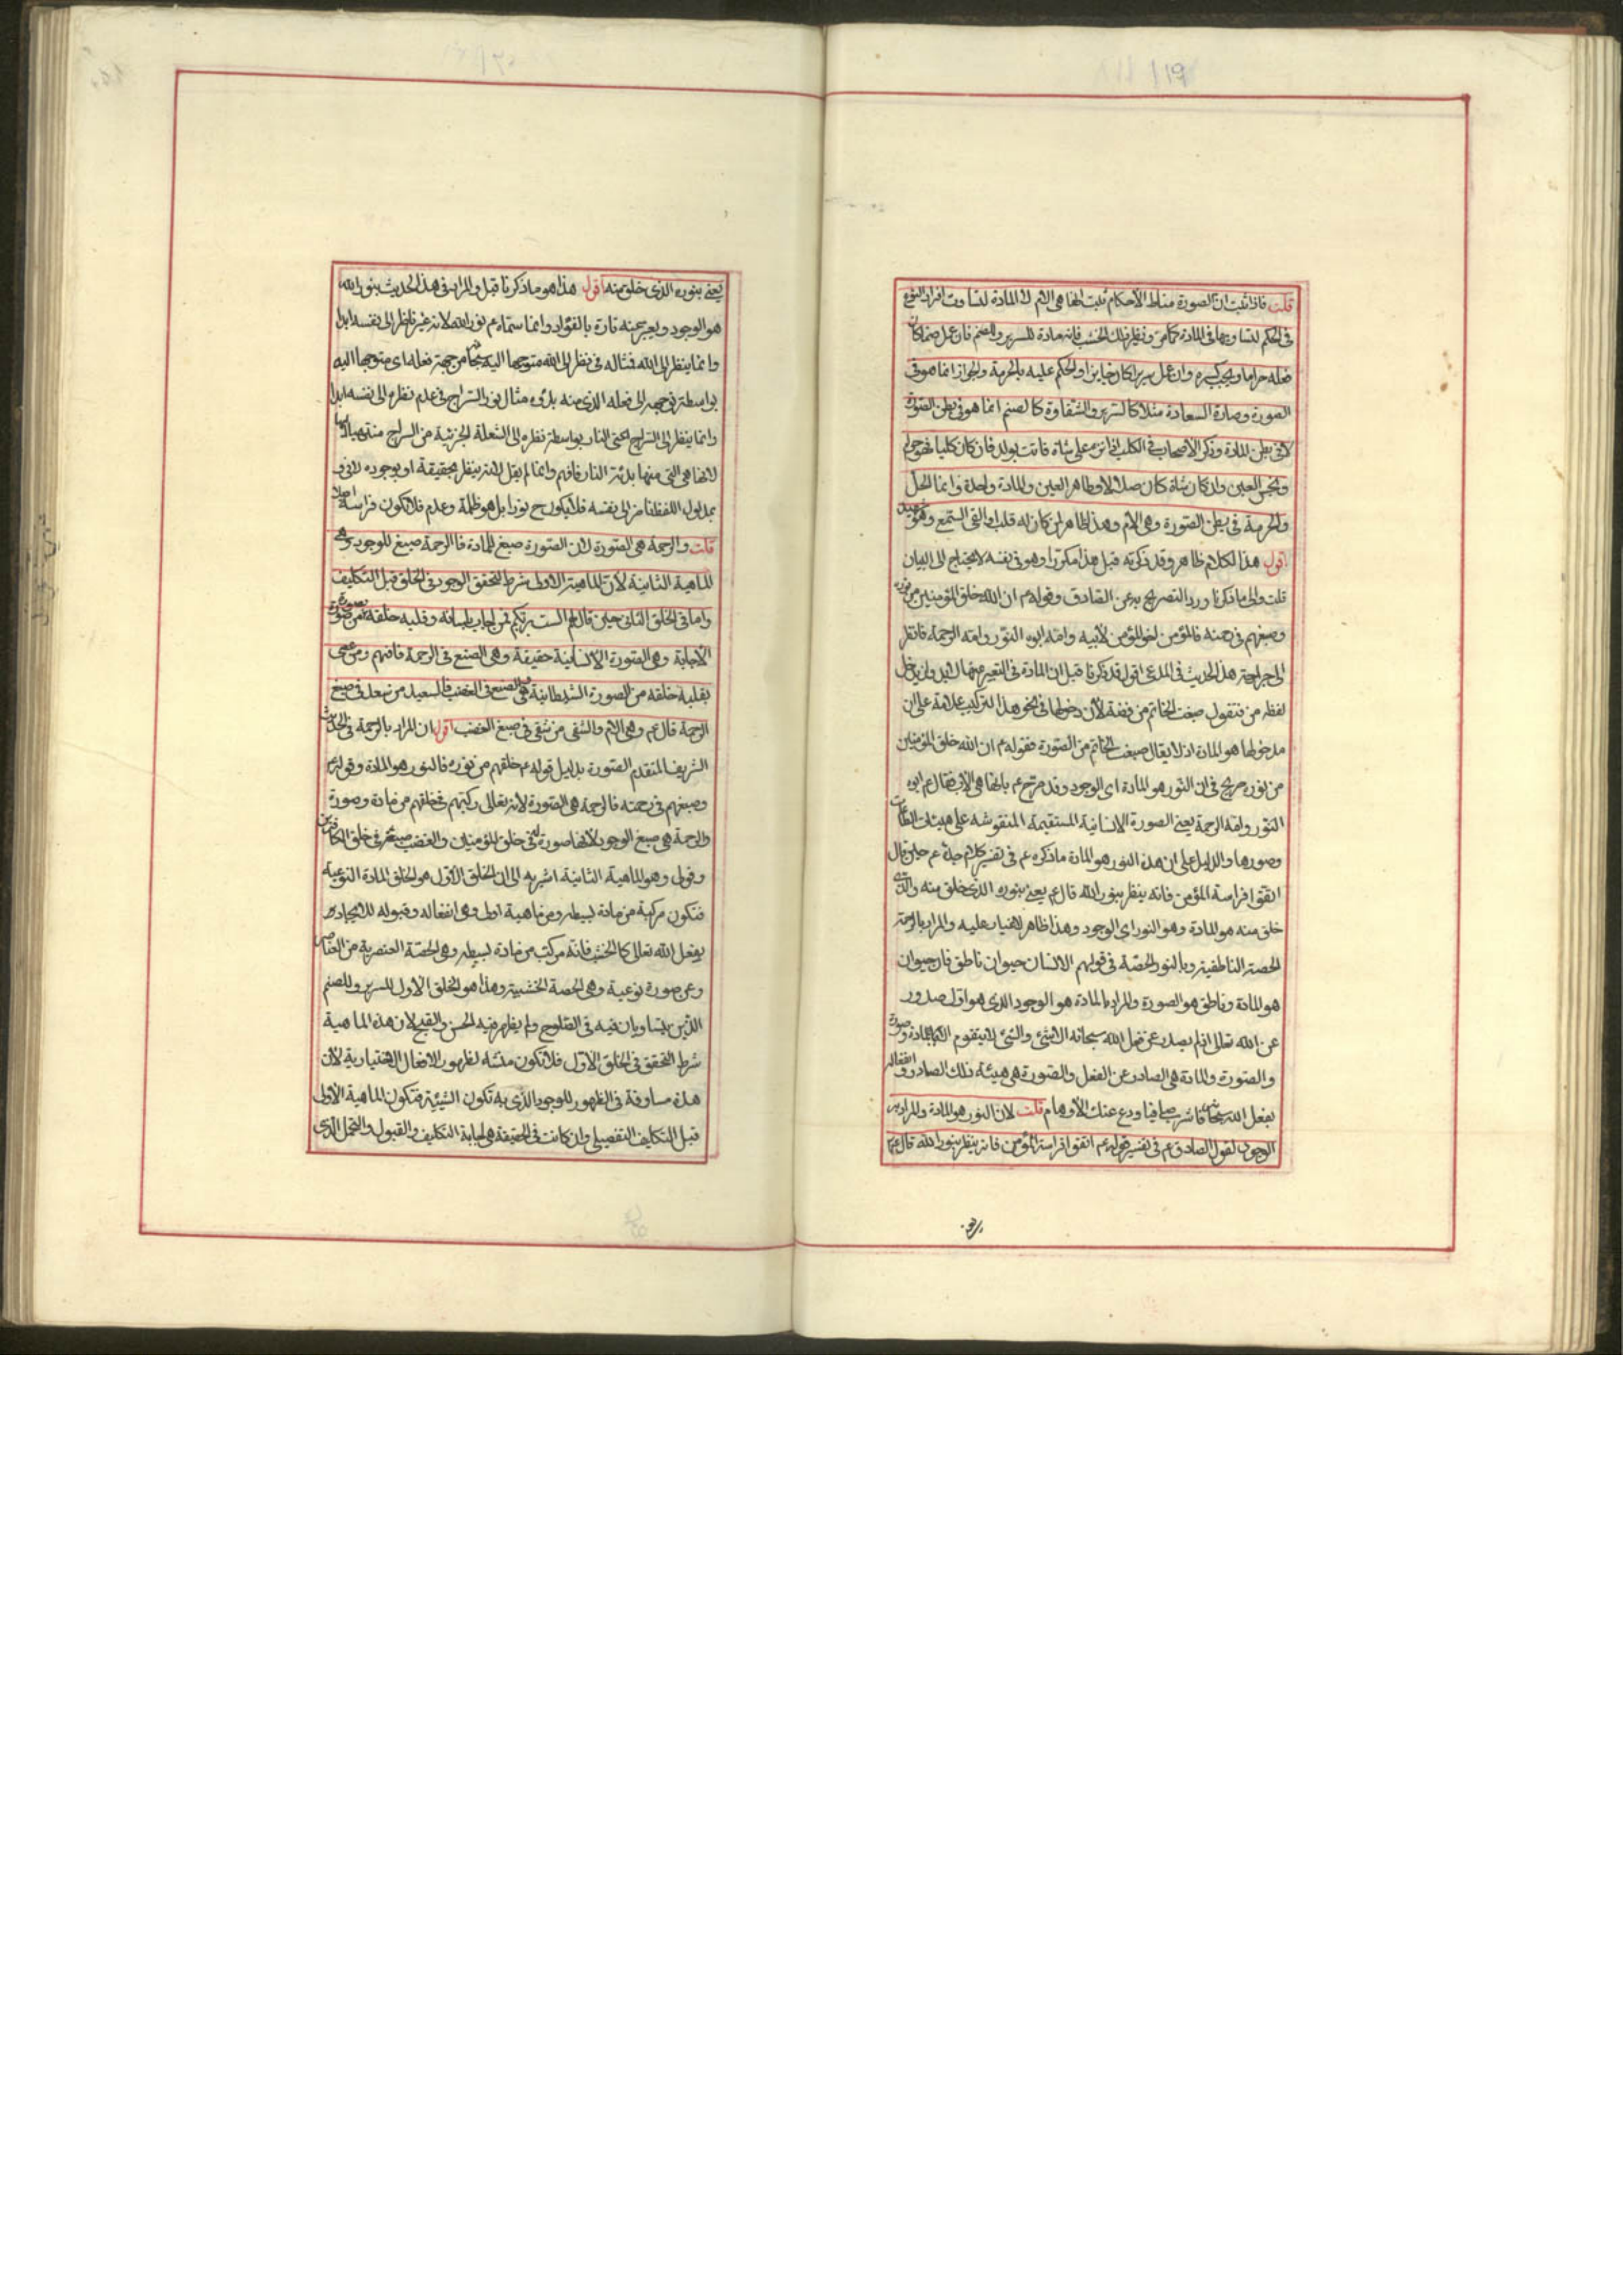 قلت فاذا ثبت ان الصورة مناط الأحكام ثبت انها هي الام لا المادة لتساوت افراد النوع
في الحكم لتساويها في المادة كما مر ونظير ذلك الخشب فانه مادة للسرير والصنم فان عمل صنما كان
فعله حراما ويجب كسره وان عمل سريرا كان جايزا والحكم عليه بالحرمة والجواز انما هو في
الصورة وصارة السعادة مثلا كالسرير والشقاوة كالصنم انما هو في بطن الصورة
لا في بطن المادة وذكر الأصحاب في الكلب اذا نزى على شاة فاتت بولد فان كان كلبا فهو حرام
ونجس العين وان كان شاة كان حلالا وطاهر العين والمادة واحدة وانما الحل
والحرمة في بطن الصورة وهي الام وهذا ظاهر لمن كان له قلب او القى السمع وهو شهيد
اقول هذا الكلام ظاهر وقد ذكرته قبل هذا مكررا وهو في نفسه لا يحتاج الى البيان
قلت والى ما ذكرنا ورد التصريح به عن الصادق وقوله ع ان الله خلق المؤمنين من نوره
وصبغهم في رحمته فالمؤمن اخو المؤمن لأبيه وامه ابوه النور وامه الرحمة فانظر
الى صراحة هذا الحديث في المدعى اقول قد ذكرنا قبل ان المادة في التعبير عنها لابد وان يدخل
لفظ من فتقول صغت الخاتم من فضة لأن دخولها في نحو هذا التركيب علامة على ان
مدخولها هو المادة اذ لا يقال صغت الخاتم من الصورة فقوله ع ان الله خلق المؤمنين
من نوره صريح في ان النور هو المادة اى الوجود وقد صرح ع بانها هي الأب فقال ع ابوه
النور وامه الرحمة يعني الصورة الانسانية المستقيمة المنقوشه على هيئات الطاعات
وصورها والدليل على ان هذا النور هو المادة ما ذكره ع في تفسير كلام جده ع حين قال
اتقوا فراسة المؤمن فانه ينظر بنور الله قال ع يعني بنوره الذي خلق منه والذي
خلق منه هو المادة وهو النور اى الوجود وهذا ظاهر لا غبار عليه والمراد بالرحمة
الحصة الناطقية وبالنور الحصة في قولهم الانسان حيوان ناطق فان حيوان
هو المادة وناطق هو الصورة والمراد بالمادة هو الوجود الذي هو اول صدور
عن الله تعالى اذ لم يصدر عن فعل الله سبحانه الا شئ والشئ لا يتقوم الا بالمادة وصورة
والصورة والمادة هي الصادر عن الفعل والصورة هي هيئة ذلك الصادر وانفعاله
بفعل الله سبحانه فاشرب صافيا ودع عنك الأوهام قلت لان النور هو المادة والمراد به
الوجود لقول الصادق ع في تفسير قوله ع اتقوا فراسة المؤمن فانه ينظر بنور الله قال ع
يعني بنوره الذي خلق منه اقول هذا هو ما ذكرنا قبل والمراد في هذا الحديث بنور الله
هو الوجود ويعبر عنه تارة بالفؤاد وانما سماه ع نور الله لانه غير ناظر الى نفسه ابدا
وانما ينظر الى الله فمثاله في نظر الى الله متوجها اليه سبحانه من جهة فعله اى متوجها اليه
بواسطة توجهه الى فعله الذي منه بدؤه مثال نور السراج في عدم نظره الى نفسه ابدا
وانما ينظر الى السراج اعني النار بواسطة نظره الى الشعلة المرئية من السراج
لانها هي التي منها بدئه النار فافهم وانما لم يقل لانه ينظر بحقيقة او بوجوده لان في
مدلول اللفظ نظر الى نفسه فلا يكون ح نورا بل هو ظلمة وعدم فلا تكون فراسة اصلا
قلت والرحمة هي الصورة لان الصورة صبغ للمادة فالرحمة صبغ للوجود وهي
الماهية الثانية لأن الماهية الاولى شرط لتحقق الوجود في الخلق قبل التكليف
واما في الخلق الثاني حين قال لهم الست بربكم فمن اجاب بلسانه وقلبه خلقه من صورة
الاجابة وهي الصورة الانسانية حقيقة وهي الصبغ في الرحمة فافهم ومن عصى
بقلبه خلقه من الصورة الشيطانية وهي الصبغ في الغضب فالسعيد من سعد في صبغ
الرحمة قال ع وهي الام والشقي من شقي في صبغ الغضب اقول ان المراد بالرحمة في الحديث
الشريف المتقدم الصورة بدليل قوله ع خلقهم من نوره فالنور هو المادة وقوله ع
وصبغهم في رحمته فالرحمة هي الصورة لأنه تعالى ركبهم في خلقهم من مادة وصورة
والرحمة هي صبغ الوجود لأنها صورة في خلق المؤمنين والغضب صبغ في خلق الكافرين
وقولي وهو الماهية الثانية اشير به الى ان الخلق الأول هو الخلق المادة النوعية
فتكون مركبة من مادة بسيطه ومن ماهية اولى وهي انفعاله وقبوله للايجاد
بفعل الله تعالى كالخشب فانه مركب من مادة بسيطه وهي الحصة العنصرية من العناصر
وعن صورة نوعية وهي الحصة الخشبية وهذا هو الخلق الاول للسرير وللصنم
الذين يتساويان فيه في الصلوح ولم يظهر فيه الحسن والقبح لان هذه الماهية
شرط التحقق في الخلق الأول فلا تكون منشأ لظهور الافعال الاختيارية لان
هذه مساوقة في الظهور للوجود الذي به تكون الشيئية فتكون الماهية الاولى
قبل التكليف التفصيلي وان كانت في الحقيقة هي اجابة التكليف والقبول والتحمل الذي